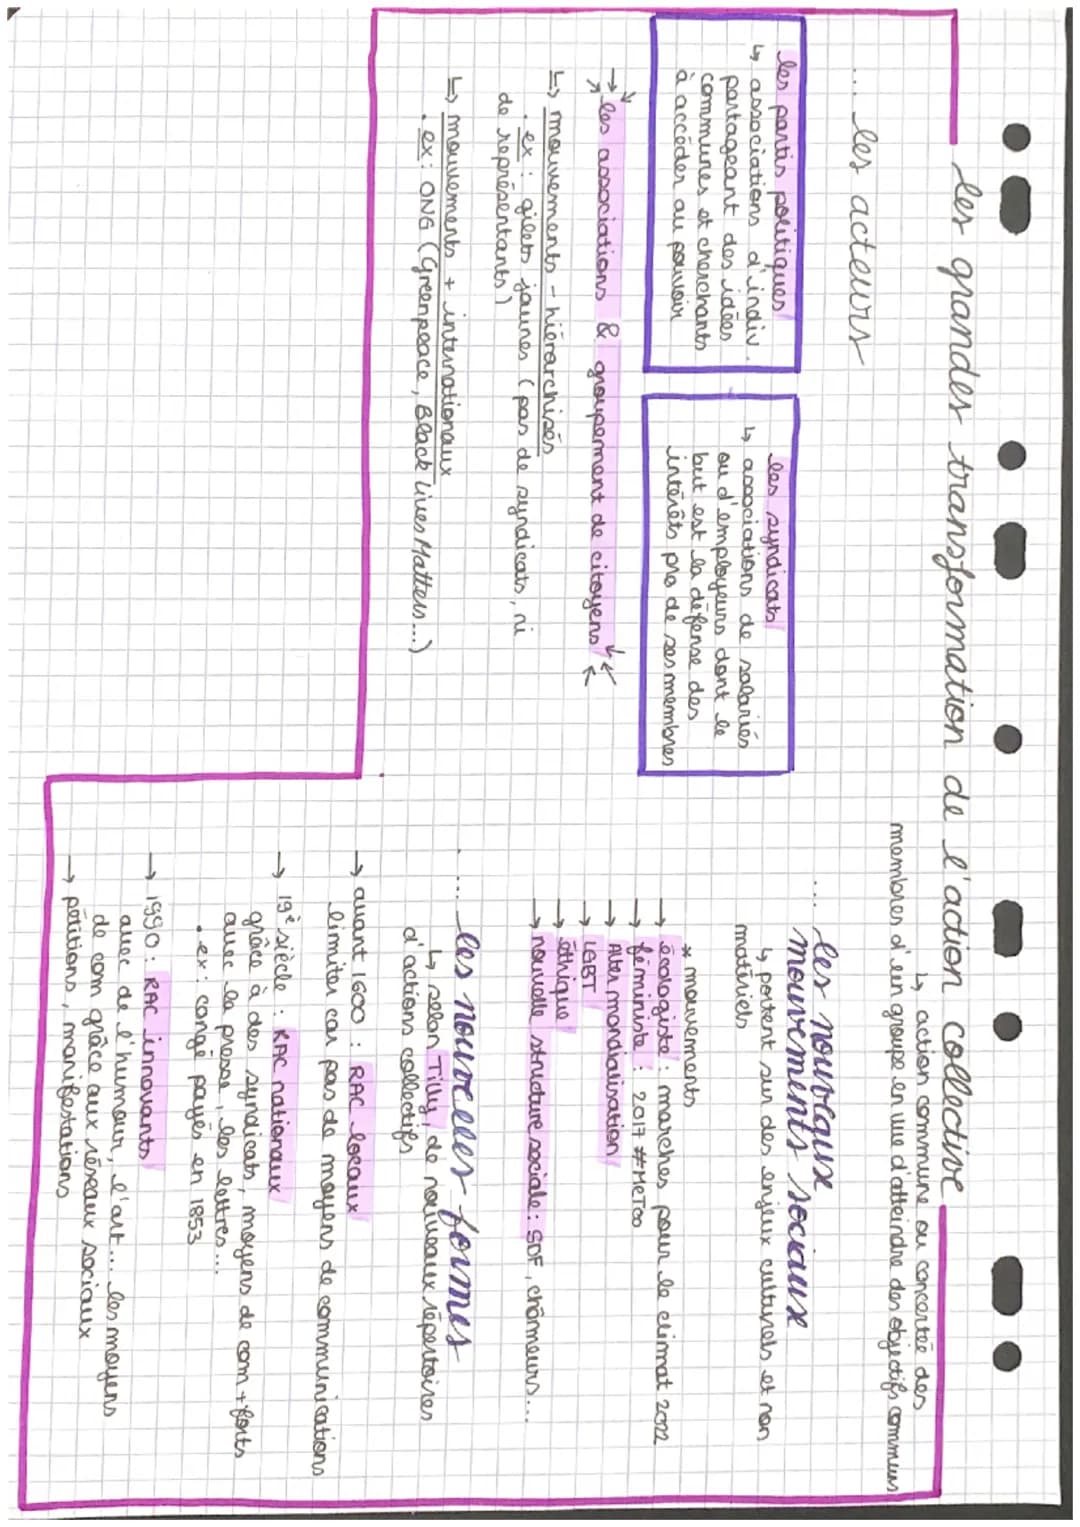 les grandes transformation de l'action collective
↳ action commune ou concertée des
membres d'en groupe en vue d'atteindre des objectifs communs
... les acteurs
les partis politiques
↳ associations d'indiv.
partageant des idées
communes et cherchants
à accéder au pouvoir
les syndicats
↳ associations de salariés
ou d'employeurs dont le
but est la défense des
intérêts pro de ses membres
les associations & groupement de citoyens
↳ mouvements - hiérarchisés
. ex : gilets jaunes (pas de syndicats, ni
de représentants)
↳ mouvements + internationaux
. ex : ONG (Greenpeace, Black Lives Matters...)
... les nouveaux
mouvements sociaux
↳ portent sur des enjeux culturels et non
matériels
* mouvements
→ écologiste : marches pour le climat 2022
→ féministe : 2017 #MeToo
→ Alter mondialisation
→ LGBT
→ éthique
→ nouvelle structure sociale : SDF, chômeurs...
... les nouvelles formes
↳ selon Tilly, de nouveaux répertoires
d'actions collectifs
→ avant 1600 : RAC locaux
limiter car pas de moyens de communications
→ 19è siècle : RAC nationaux
grâce à des syndicats, moyens de com + forts
avec la presse, les lettres...
. ex : congé payés en 1853
→ 1990 : RAC innovants
avec de l'humour, l'art... les moyens
de com grâce aux réseaux sociaux
→ pétitions, manifestations